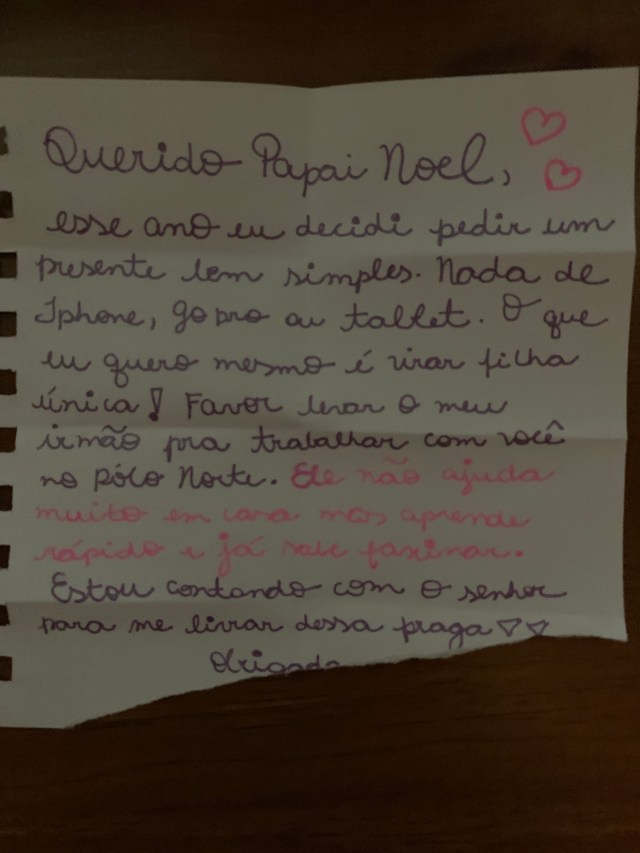 Querido Papai Noel,
esse ano eu decidi pedir um
presente bem simples. Nada de
Iphone, go pro ou tablet. O que
eu quero mesmo é virar filha
única! Favor levar o meu
irmão pra trabalhar com você
no Pólo Norte. Ele não ajuda
muito em casa mas aprende
rápido e já sabe faxinar.
Estou contando com o senhor
para me livrar dessa praga
Obrigada